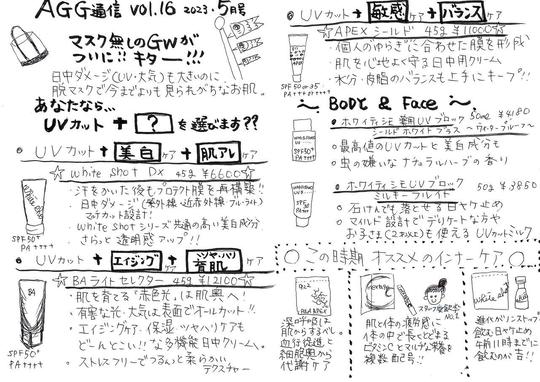 AGG通信 VOL.16 2023.5月号
マスク無しのGWが
ついに!! キター!!!
日中ダメージ(UV・大気)も大きいのに
脱マスクで今までよりも見られがちなお肌。
あなたなら…
UVカット + ? を選びます??
UVカット + 美白ケア + 肌アレケア
☆ White Shot DX 45g ¥6600 ☆
・汗をかいた後もプロテクト膜を再構築!!
・日中ダメージ(紫外線・近赤外線・ブルーライト)
マチカット設計!
・White Shotシリーズ共通の高い美白成分
・さらっと透明感アップ!!
White Shot
SPF50+
PA++++
UVカット + エイジングケア + ツヤ・ハリ育肌ケア
☆ BAライトセレクター 45g ¥12100 ☆
・肌を育てる「赤色光」は肌奥へ!
・有害な光・大気は表面でオールカット!!
・エイジングケア・保湿・ツヤハリケアも
どーんとこい!!な多機能日中クリーム。
・ストレスフリーでつるんっと柔らかい
テクスチャー
BA
SPF50+
PA++++
UVカット + 敏感ケア + バランスケア
☆ APEX シールド 45g ¥11000 ☆
・個人のゆらぎに合わせた膜を形成
・肌を心地よく守る日中用クリーム
・水分・皮脂のバランスも上手にキープ!!
SPF50 or 35
PA++++
～ Body & Face ～
ホワイティシモ 薬用UVブロック 50ml ¥4180
シールドホワイトプラス ～ウォータープルーフ～
・最高値のUVカットと美白成分も
・虫の嫌いなナチュラルハーブの香り
SPF50+
PA++++
ホワイティシモUVブロック 50g ¥3850
ミルキーフルイド
・石けんでも落とせる日ヤケ止め
・マイルド設計でデリケートな方や
お子さま(2才以上)も使えるUVカットミルク
この時期 オススメのインナーケア
深呼吸は
肌からするべし。
血行促進と
細胞奥から
代謝ケア
肌と体の疲労感に
体の中で長くとどまる
ビタミンCとマルチな栄養を
複数配合!!
進化がノンストップ
飲む日ヤケ止め
午前11時までに
飲むのが吉!!